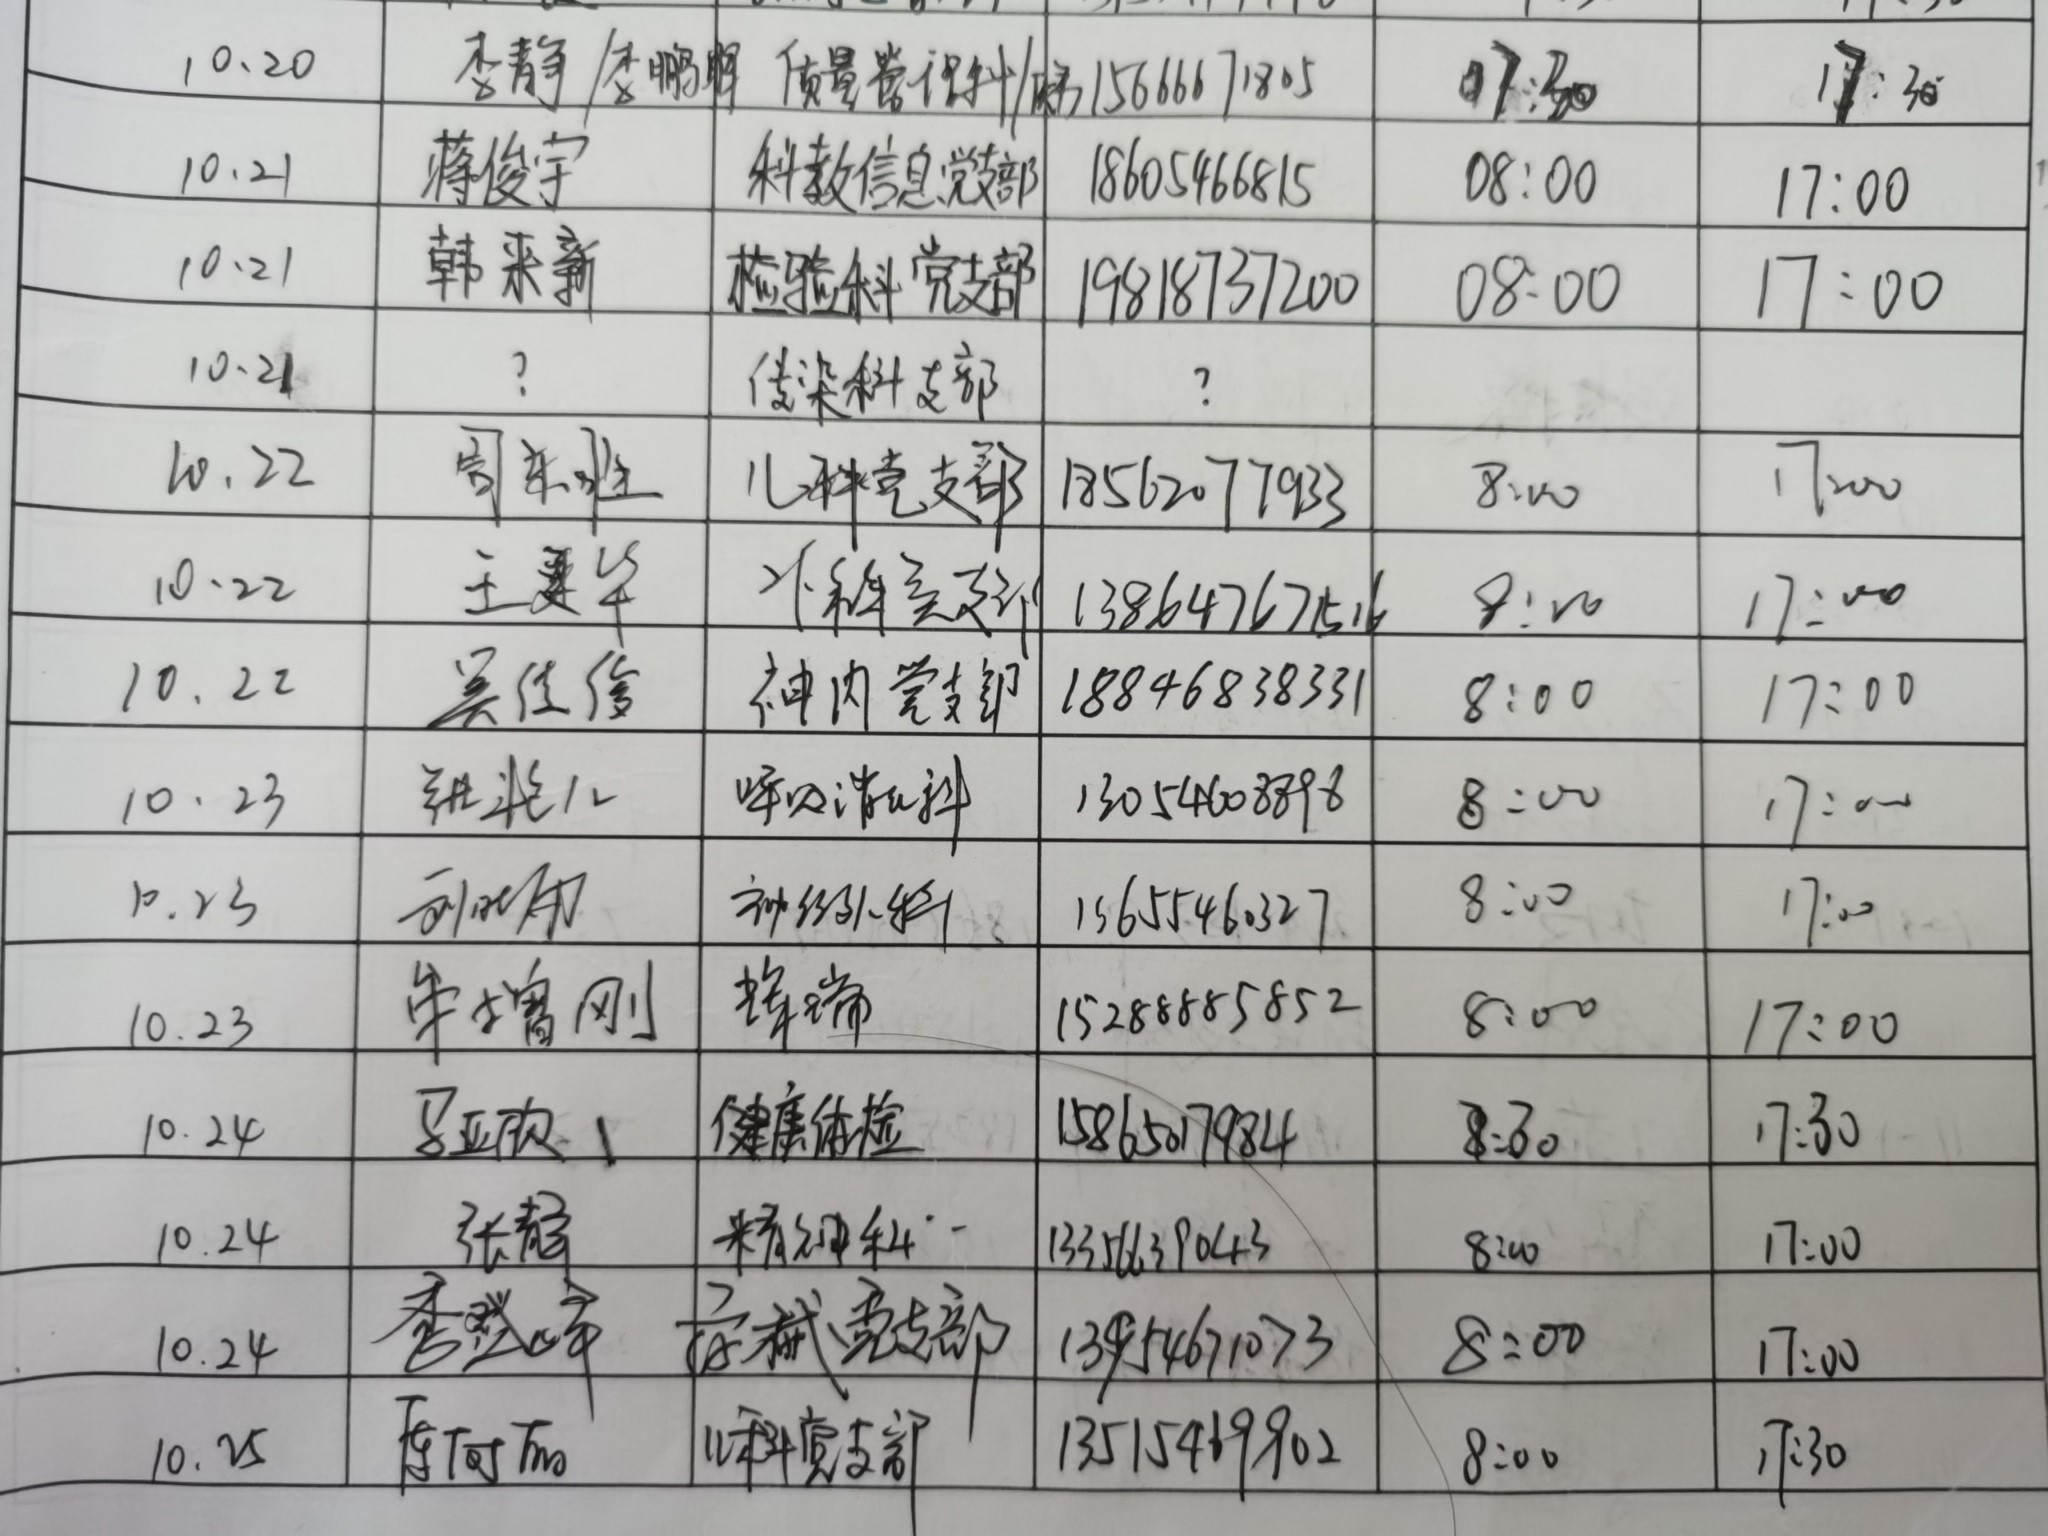 10.20 李静/李鹏辉 质量管理科/ 15666671805 07:30 17:30
10.21 蒋俊宇 科教信息党支部 18605466815 08:00 17:00
10.21 韩来新 检验科党支部 19818737200 08:00 17:00
10.21 ? 传染科支部 ?
10.22 儿科党支部 18562077933 8:00 17:00
10.22 外科党支部 8:00 17:00
10.22 吴佳俊 神内党支部 18846838331 8:00 17:00
10.23 呼吸消化科 13054608898 8:00 17:00
10.23 神经外科 8:00 17:00
10.23 刚 15288885852 8:00 17:00
10.24 健康体检 15865017984 8:30 17:30
10.24 张静 精神科 13356639043 8:00 17:00
10.24 李登峰 药械党支部 13954671073 8:00 17:00
10.25 儿科党支部 13515469902 8:00 17:30